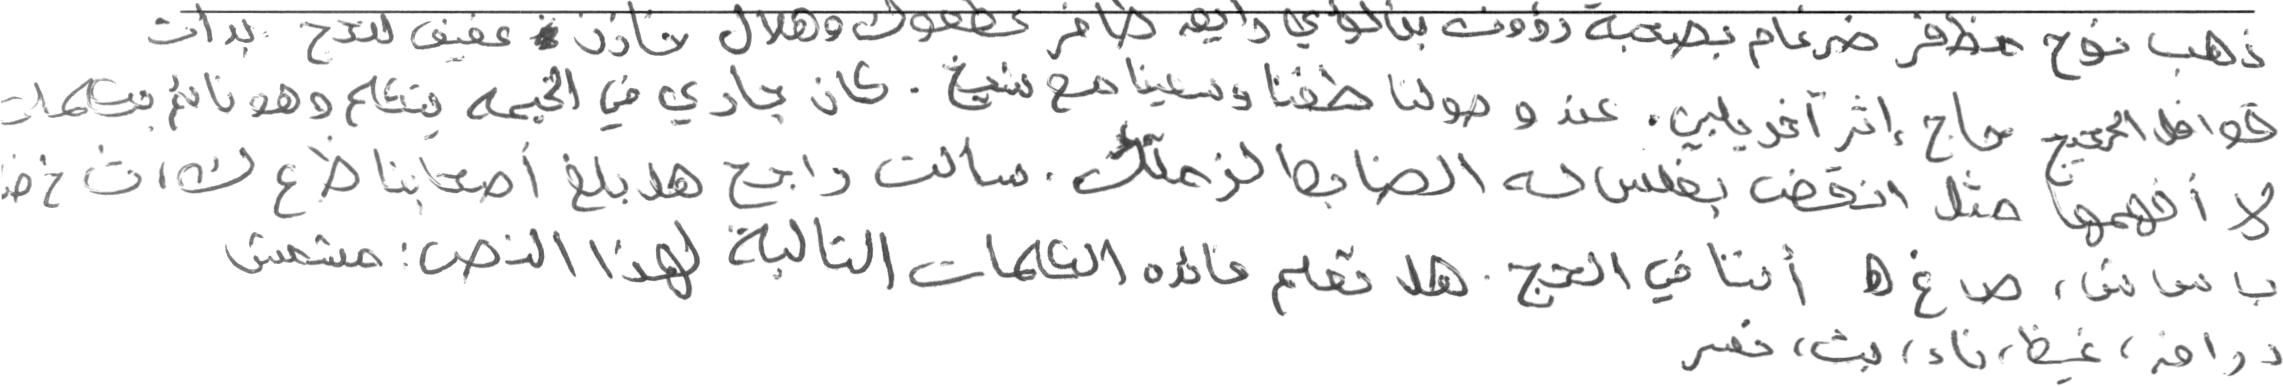 ذهب نوح مظفر ضرغام بصحبة رؤوف بن لؤي رايعه ظافر عطعوط وهلال خازن عفيف للحج. بدأت
قوافل الحجيج حاج إثر آخر يلبي. عند وصولنا طفنا وسعينا مع شيخ. كان جاري في الخيمه يتكلم وهو نائم بكلمات
لا أفهمها مثل انقض بغلس له الضابط لزملتك. سألت راجح هل بلغ أصحابنا ظ ع ك ا ث خ ض
ب س ش، ص غ ه أننا في الحج. هل تعلم فائده الكلمات التالية لهذا النص: مشمش
دراف، غيظ، ناء، بث، نفس